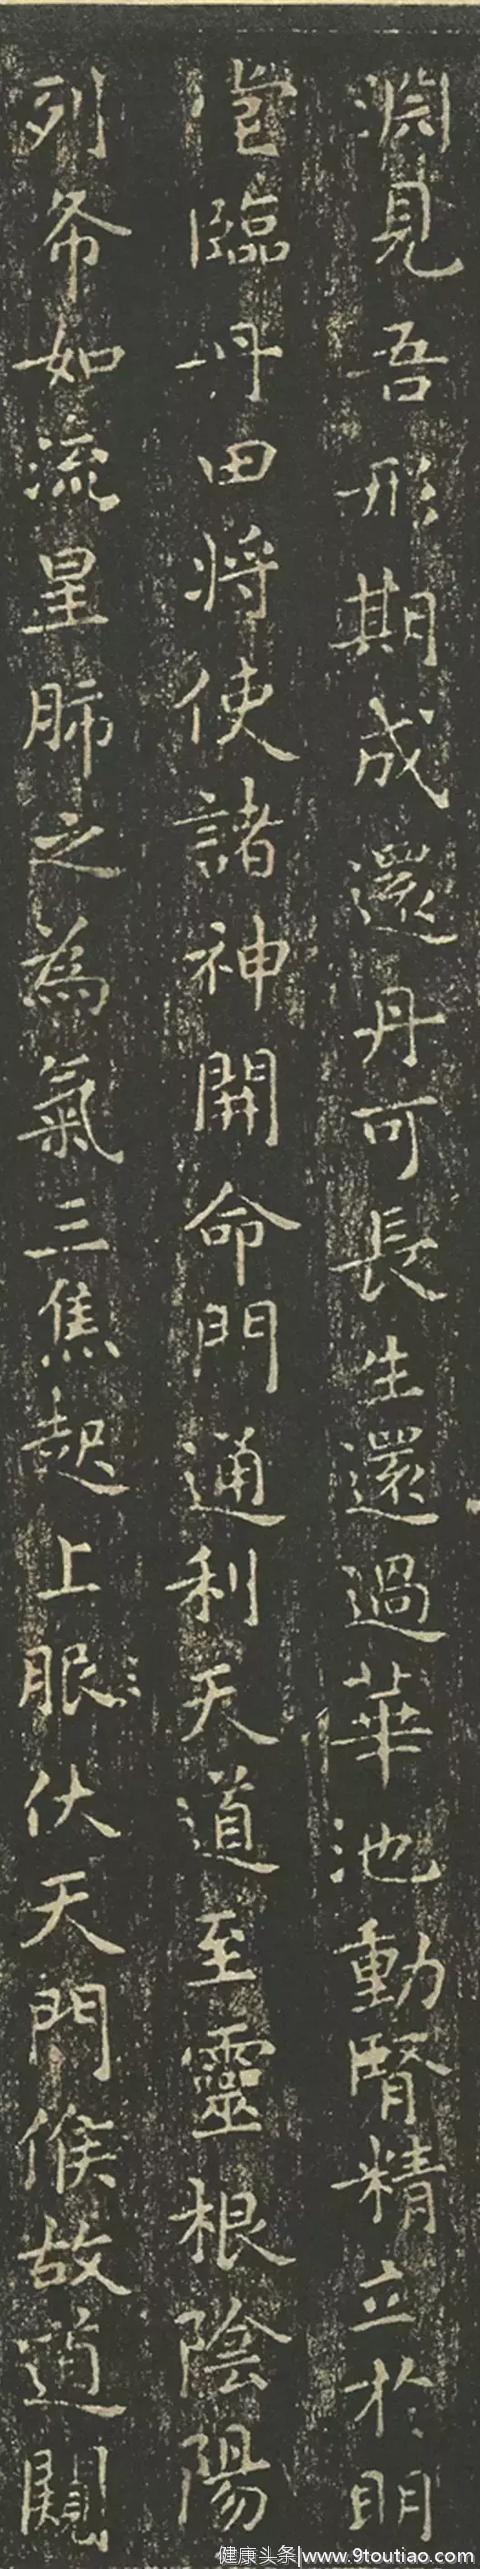 淵見吾形期成還丹可長生還過華池動腎精立於明
堂臨丹田将使諸神開命門通利天道至靈根陰陽
列布如流星肺之為氣三焦起上服伏天門候故道闚
健康头条|www.9toutiao.com